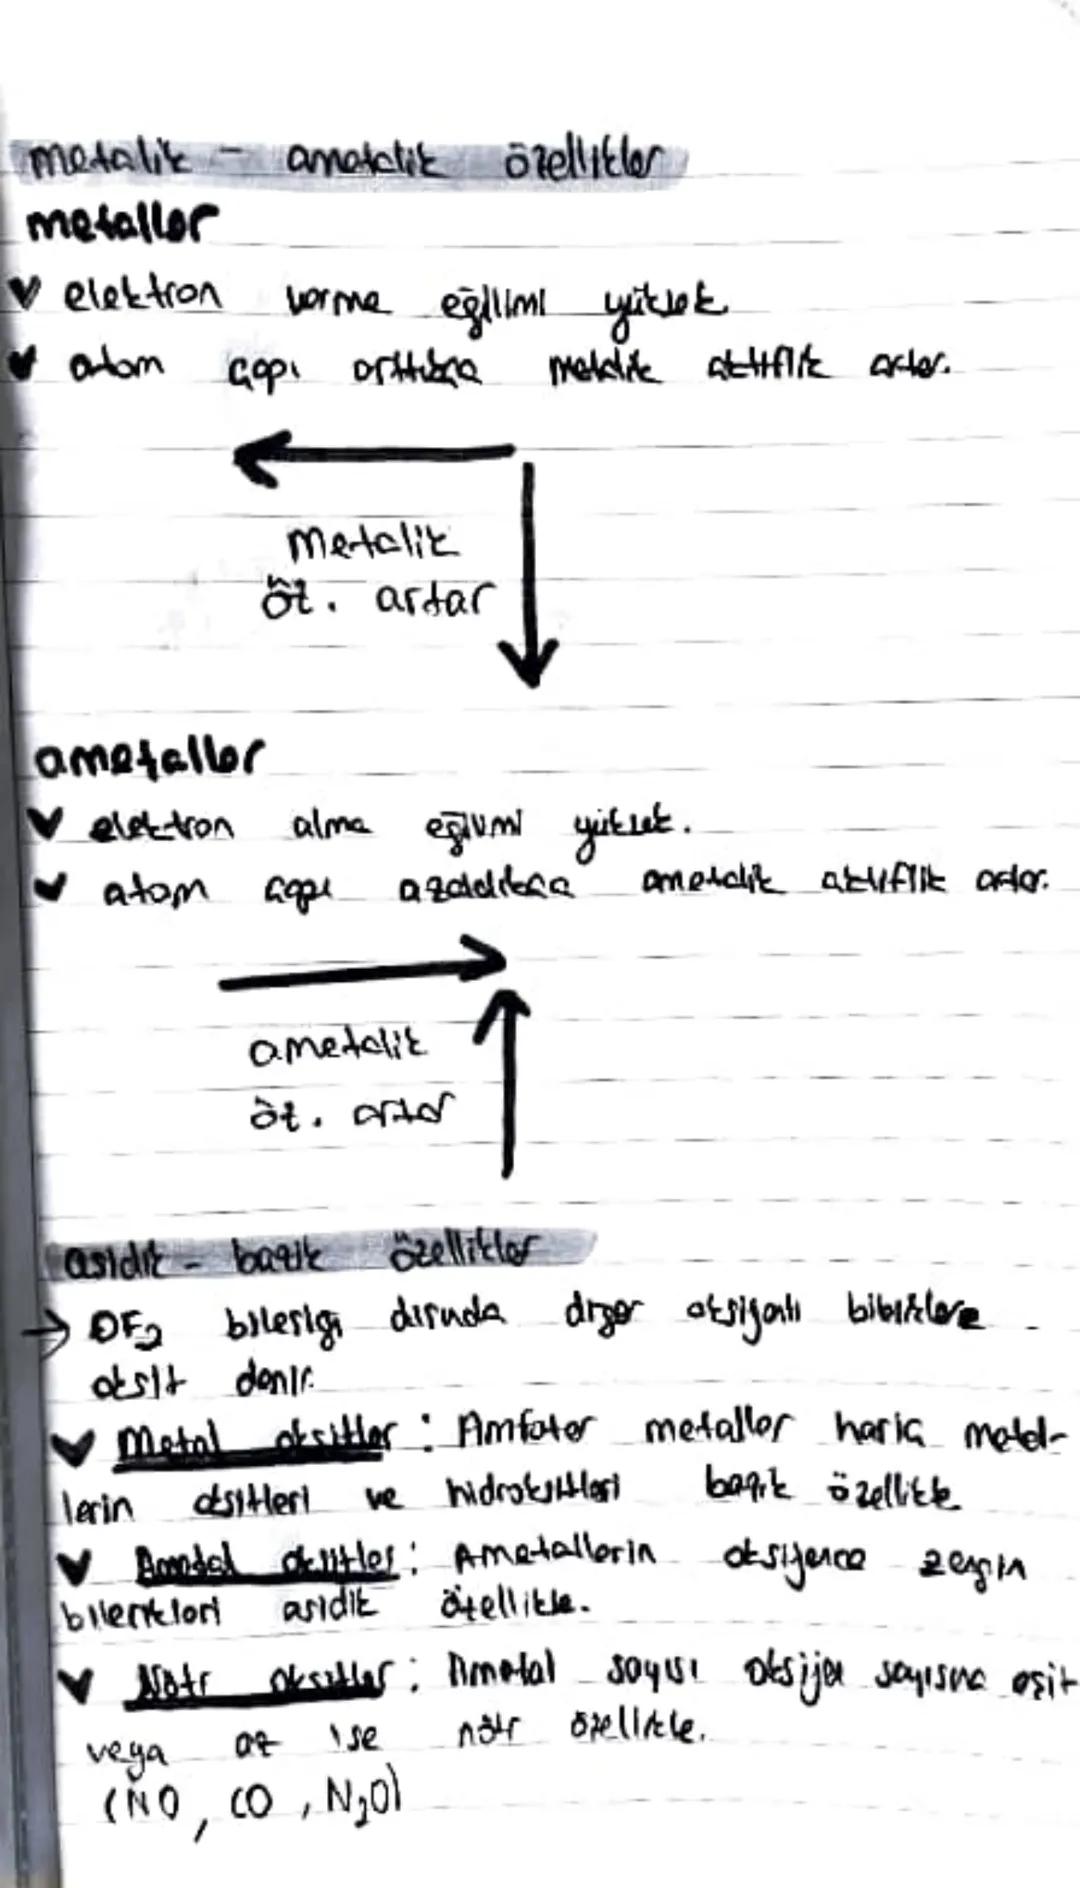 metalik - ametalik özellikler
metaller
elektron verme eğilimi yüksek
atom çapı arttıkça metalik aktiflik artar.
Metalik
öz. artar
ametaller
elektron alma eğilimi yüksek.
atom çapı azaldıkça ametalik aktiflik artar.
ametalik
öz. artar
asidik - bazik özellikler
→ OF2 bileşiği dışında diğer oksijenli
oksit denir.
Metal oksitler: Amfoter metaller hariç metal-
lerin oksitleri ve hidroksitleri bazik özellikte
Ametal oksitler: Ametallerin oksijence zengin
bileşikleri asidik özellikte.
Nötr oksitler: Ametal sayısı oksijen sayısına eşit
veya az ise nötr özellikte.
(NO, CO, N2O)